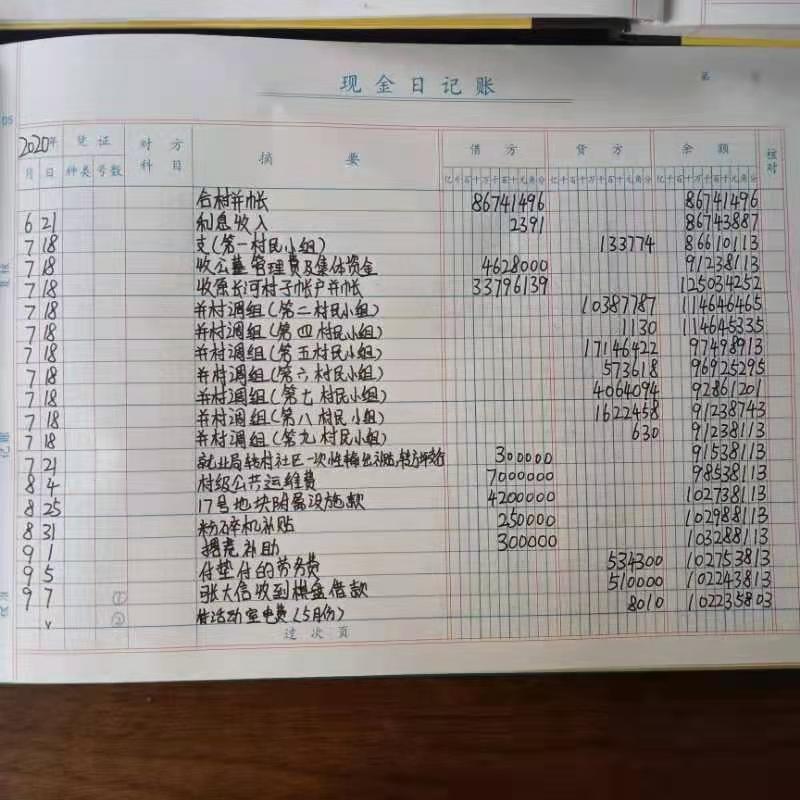 现金日记账
第
2020年 凭证 对方科目 摘要 借方 贷方 余额 核对
月 日 种类 号数 亿千百十万千百十元角分 亿千百十万千百十元角分 亿千百十万千百十元角分
合村并帐 86741496 86741496
6 21 利息收入 2391 86743887
7 18 支(第一村民小组) 133774 86610113
7 18 收公墓管理费及集体资金 4628000 91238113
7 18 收原长河村子帐户并帐 33796139 125034252
7 18 并村调组(第二村民小组) 10387787 114646465
7 18 并村调组(第四村民小组) 1130 114645335
7 18 并村调组(第五村民小组) 17146422 97498913
7 18 并村调组(第六村民小组) 573618 96925295
7 18 并村调组(第七村民小组) 4064094 92861201
7 18 并村调组(第八村民小组) 1622458 91238743
7 18 并村调组(第九村民小组) 630 91238113
7 21 就业局转村社区一次性输出补贴 300000 91538113
8 4 村级公共运维费 7000000 98538113
8 25 17号地块附属设施款 4200000 102738113
8 31 粉碎机补贴 250000 102988113
9 1 补助 300000 103288113
9 5 付垫付的劳务费 534300 102753813
9 7 ① 张大信收到棋盘借款 510000 102243813
② 付活动室电费(5月份) 8010 102235803
过次页